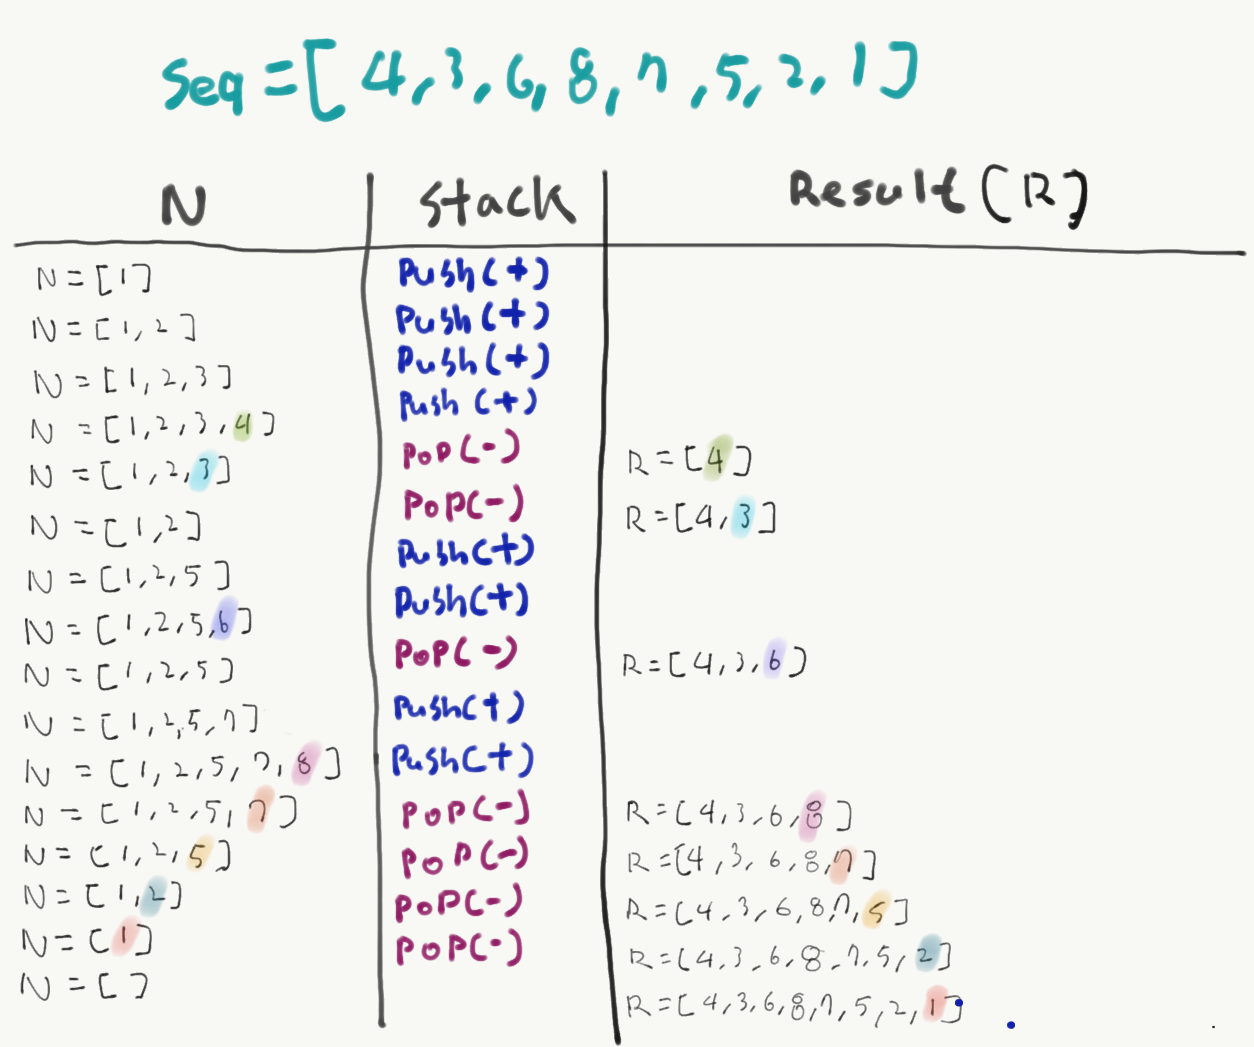 Seq = [ 4, 3, 6, 8, 7, 5, 2, 1 ]
N Stack Result (R)
N = [ 1 ] Push (+)
N = [ 1, 2 ] Push (+)
N = [ 1, 2, 3 ] Push (+)
N = [ 1, 2, 3, 4 ] Push (+)
N = [ 1, 2, 3 ] POP (-) R = [ 4 ]
N = [ 1, 2 ] POP (-) R = [ 4, 3 ]
N = [ 1, 2, 5 ] Push (+)
N = [ 1, 2, 5, 6 ] Push (+)
N = [ 1, 2, 5 ] POP (-) R = [ 4, 3, 6 ]
N = [ 1, 2, 5, 7 ] Push (+)
N = [ 1, 2, 5, 7, 8 ] Push (+)
N = [ 1, 2, 5, 7 ] POP (-) R = [ 4, 3, 6, 8 ]
N = [ 1, 2, 5 ] POP (-) R = [ 4, 3, 6, 8, 7 ]
N = [ 1, 2 ] POP (-) R = [ 4, 3, 6, 8, 7, 5 ]
N = [ 1 ] POP (-) R = [ 4, 3, 6, 8, 7, 5, 2 ]
N = [ ] R = [ 4, 3, 6, 8, 7, 5, 2, 1 ]